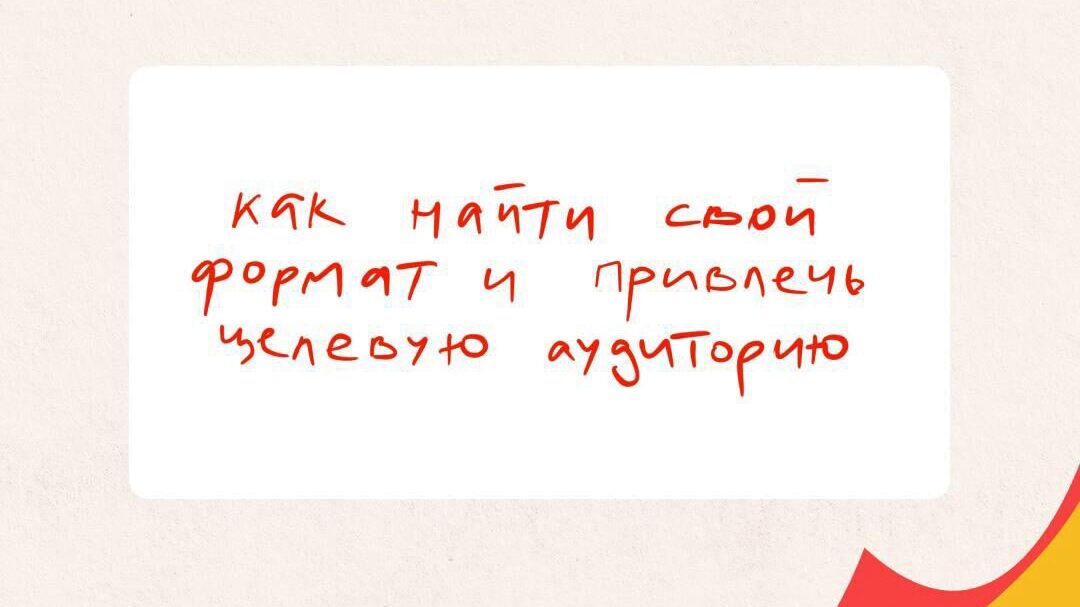 как найти свой
формат и привлечь
целевую аудиторию